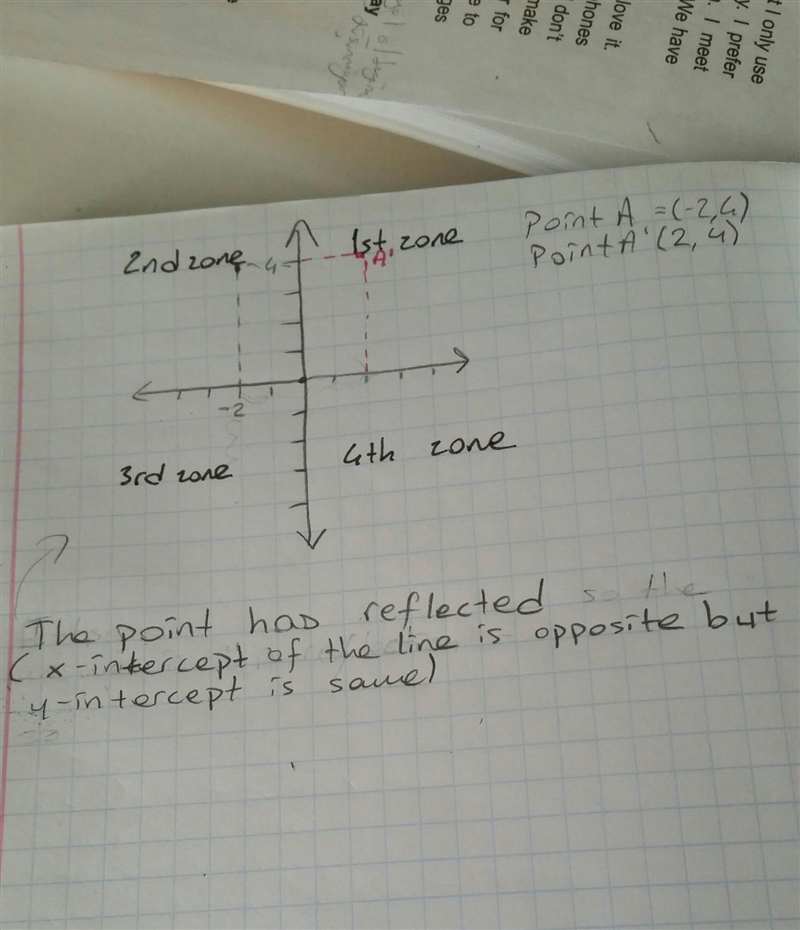 t I only use
y. I prefer
. I meet
We have
love it.
hones
don't
make
r for
e to
ay
ges
Point A = (-2,4)
Point A' (2, 4)
2nd zone
4
1st, zone
A'
-2
3rd zone
4th zone
The point has reflected so the
( x-intercept of the line is opposite but
y-intercept is same)